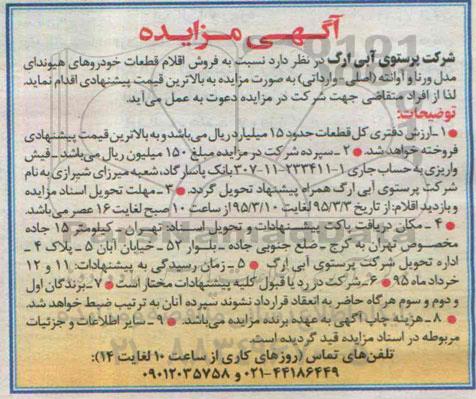 آگهی مزایده
شرکت پرستوی آبی ارگ در نظر دارد نسبت به فروش اقلام قطعات خودروهای هیوندای
مدل ورنا و آوانته (اصلی - وارداتی) به صورت مزایده به بالاترین قیمت پیشنهادی اقدام نماید.
لذا از افراد متقاضی جهت شرکت در مزایده دعوت به عمل می‌آید.
توضیحات:
● ۱- ارزش دفتری کل قطعات حدود ۱۵ میلیارد ریال می‌باشد و به بالاترین قیمت پیشنهادی
فروخته خواهد شد. ● ۲- سپرده شرکت در مزایده مبلغ ۱۵۰ میلیون ریال می‌باشد - فیش
واریزی به حساب جاری ۱-۲۳۳۴۱۱-۱۱-۳۰۷ بانک پاسارگاد، شعبه میرزای شیرازی به نام
شرکت پرستوی آبی ارگ همراه پیشنهاد تحویل گردد. ● ۳- مهلت تحویل اسناد مزایده
و بازدید اقلام: از تاریخ ۹۵/۳/۳ لغایت ۹۵/۳/۱۰ از ساعت ۱۰ صبح لغایت ۱۶ عصر می‌باشد.
● ۴- مکان دریافت پاکت پیشنهادات و تحویل اسناد: تهران - کیلومتر ۱۵ جاده
مخصوص تهران به کرج - ضلع جنوبی جاده - بلوار ۵۲ - خیابان آبان ۵ - پلاک ۴ -
اداره تحویل شرکت پرستوی آبی ارگ ● ۵- زمان رسیدگی به پیشنهادات: ۱۱ و ۱۲
خرداد ماه ۹۵ ● ۶- شرکت در رد یا قبول کلیه پیشنهادات مختار است ● ۷- برندگان اول
و دوم و سوم هرگاه حاضر به انعقاد قرارداد نشوند سپرده آنان به ترتیب ضبط خواهد شد.
● ۸- هزینه چاپ آگهی به عهده برنده مزایده می‌باشد. ● ۹- سایر اطلاعات و جزئیات
مربوطه در اسناد مزایده قید گردیده است.
تلفن‌های تماس (روزهای کاری از ساعت ۱۰ لغایت ۱۴):
۰۲۱-۴۴۱۸۶۴۴۹ و ۰۹۰۱۲۰۳۵۷۵۸